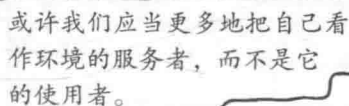 或许我们应当更多地把自己看
作环境的服务者，而不是它
的使用者。